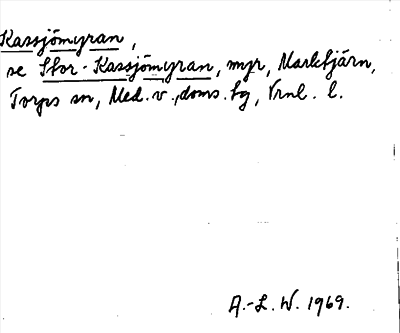 Kassjömyran,
se Stor-Kassjömyran, myr, Marktjärn,
Torps sn, Med. v., doms. tg, Vrnl. l.
A.-L. W. 1969.